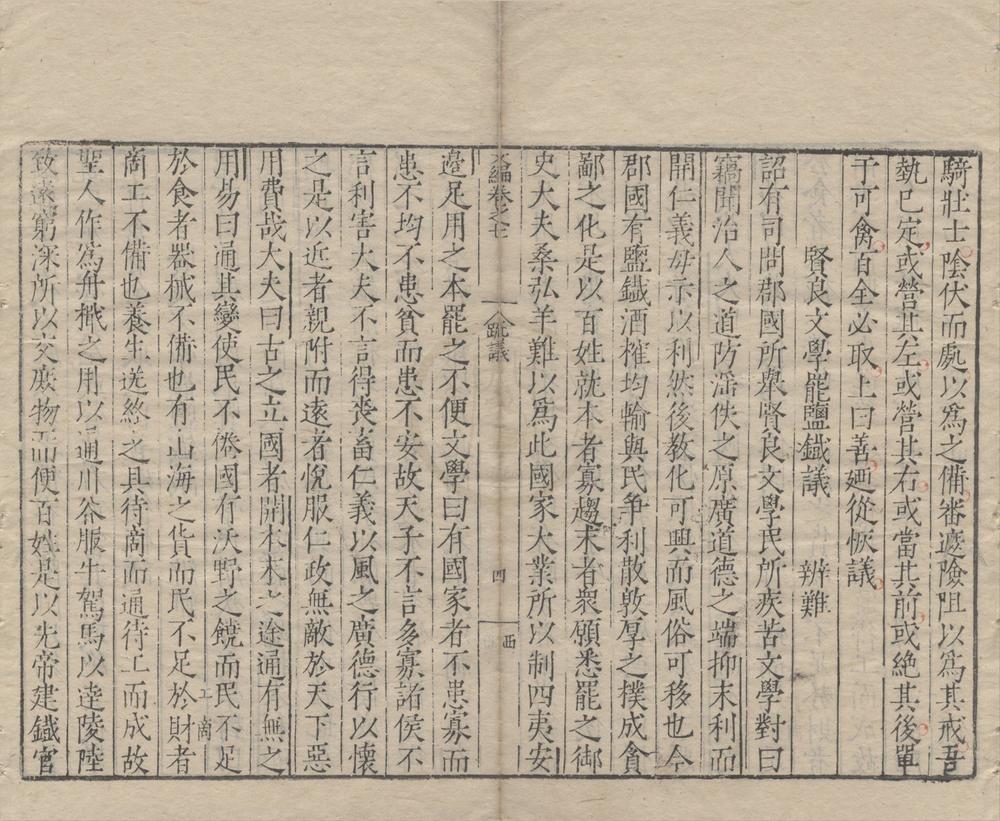 騎壯士陰伏而處以為之備審遮險阻以為其戒吾
埶已定或營其左或營其右或當其前或絶其後單
于可禽百全必取上曰善廼從恢議
賢良文學罷鹽鐡議 辨難
詔有司問郡國所舉賢良文學民所疾苦文學對曰
竊聞治人之道防滛佚之原廣道德之端抑末利而
開仁義毋示以利然後教化可興而風俗可移也今
郡國有鹽鐡酒榷均輸與民爭利散敦厚之樸成貪
鄙之化是以百姓就本者寡趨末者衆願悉罷之御
史大夫桑弘羊難以爲此國家大業所以制四夷安
文編卷之七 疏議 四 西
邊足用之本罷之不便文學曰有國家者不患寡而
患不均不患貧而患不安故天子不言多寡諸侯不
言利害大夫不言得喪畜仁義以風之廣德行以懷
之是以近者親附而遠者悅服仁政無敵於天下惡
用費哉大夫曰古之立國者開本末之途通有無之
用易曰通其變使民不倦國有沃野之饒而民不足
於食者器械不備也有山海之貨而民不足於財者
工商
啇工不備也養生送終之具待啇而通待工而成故
聖人作爲舟檝之用以通川谷服牛駕馬以逹陵陸
致遠窮深所以交庶物而便百姓是以先帝建鐡官